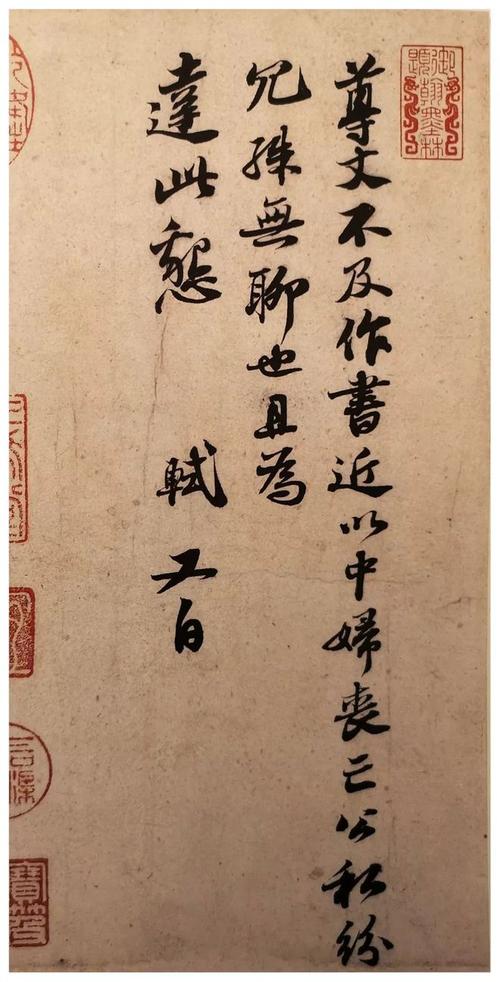 尊丈不及作書近以中婦喪亡公私紛
冗殊無聊也且為
達此懇 軾又白
御題翰墨林